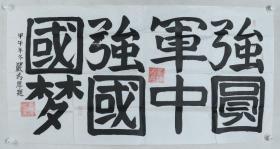 強圓
軍中
強國
國梦
甲午年冬